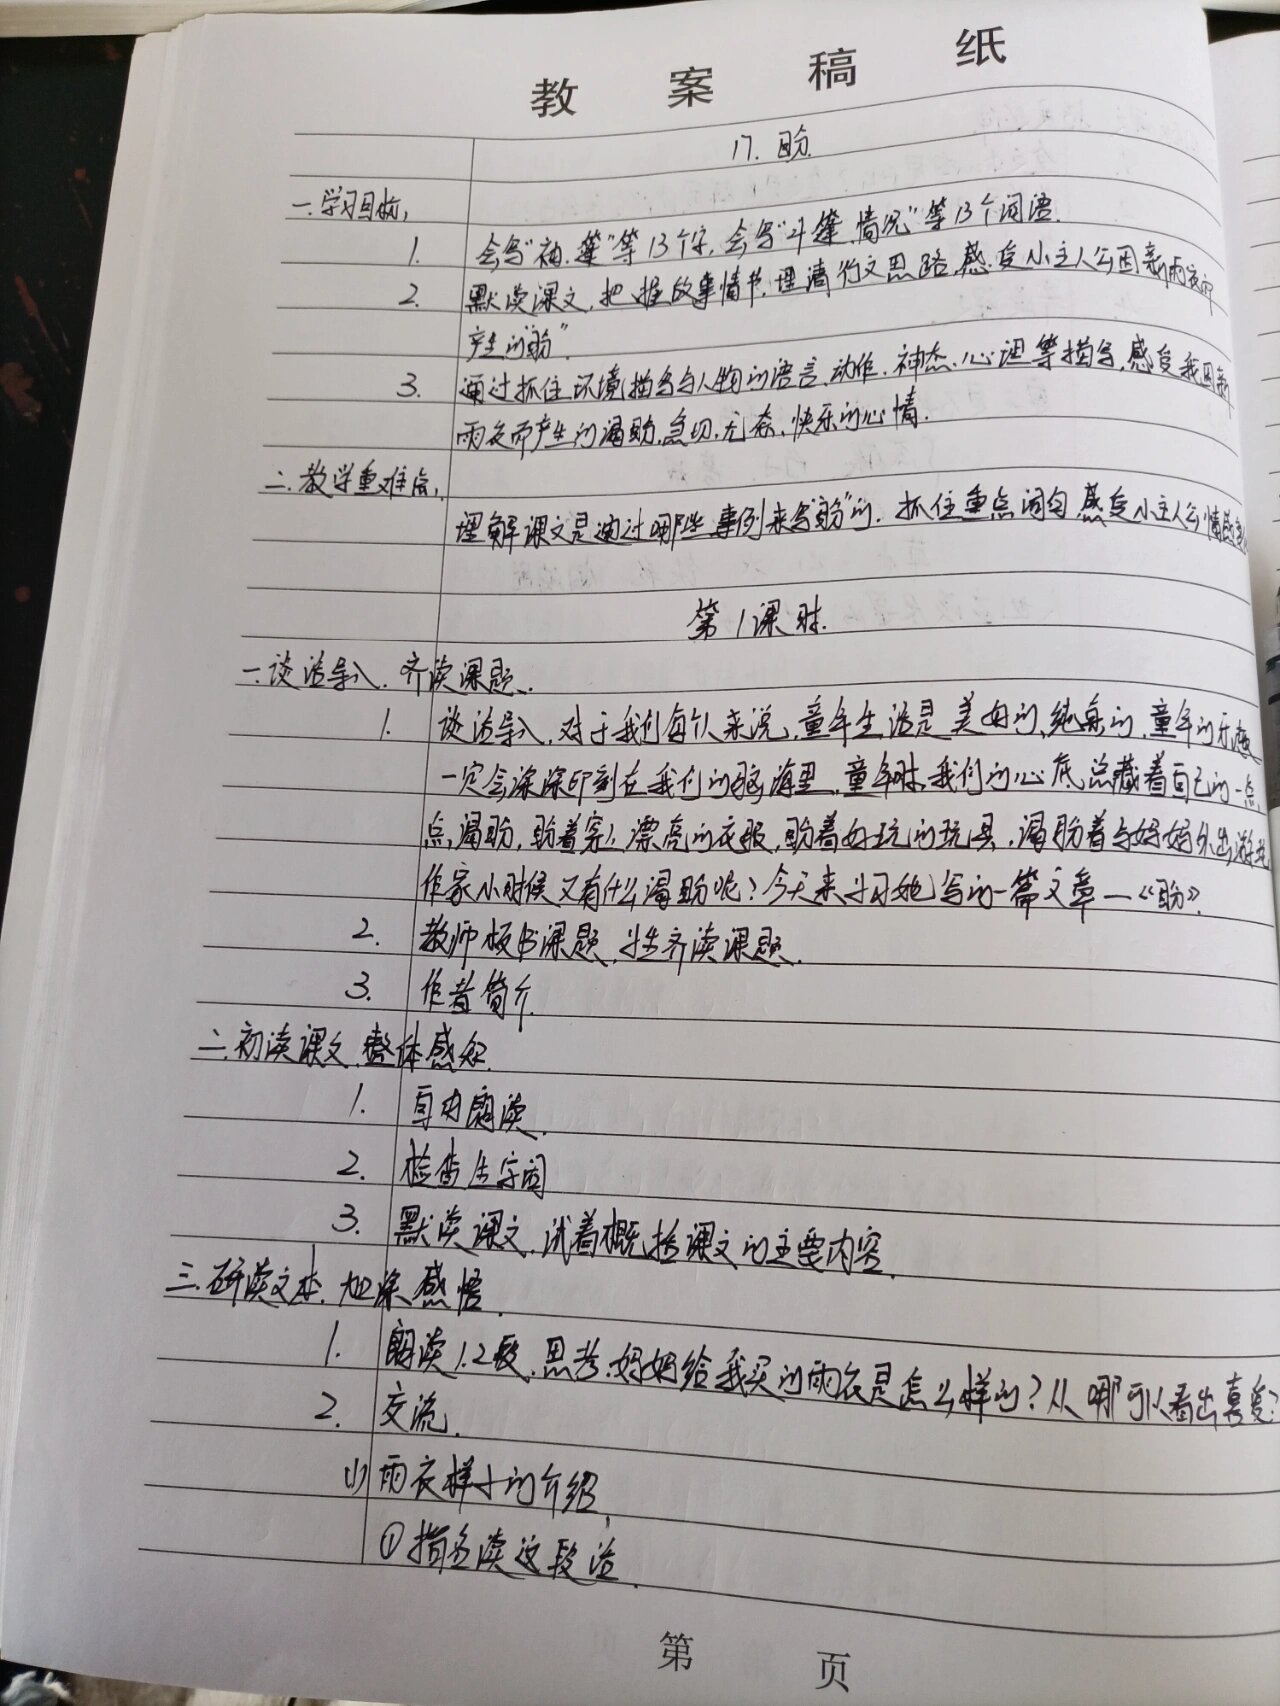 教案稿纸
17. 盼
一.学习目标,
1. 会写“袖、篷”等13个字,会写“斗篷、情况”等13个词语.
2. 默读课文,把握故事情节,理清行文思路,感受小主人公因新雨衣而
产生的“盼”.
3. 通过抓住环境描写与人物的语言、动作、神态、心理等描写,感受我因新
雨衣而产生的渴盼、急切、无奈、快乐的心情.
二.教学重难点,
理解课文是通过哪些事例来写“盼”的.抓住重点词句感受小主人公情感变化
第1课时.
一.谈话导入.齐读课题.
1. 谈话导入,对于我们每个人来说,童年生活是美好的,纯真的,童年的乐趣
一定会深深印刻在我们的脑海里,童年时,我们的心底总藏着自己的一点
点渴盼,盼着穿上漂亮的衣服,盼着好玩的玩具,渴盼着与妈妈外出游玩
作家小时候又有什么渴盼呢?今天来学习她写的一篇文章—《盼》.
2. 教师板书课题,生齐读课题.
3. 作者简介
二.初读课文,整体感知.
1. 自由朗读.
2. 检查生字词
3. 默读课文,试着概括课文的主要内容.
三.研读文本,加深感悟.
1. 朗读1.2段.思考.妈妈给我买的雨衣是怎么样的?从哪可以看出喜爱?
2. 交流.
(1) 雨衣样子的介绍.
①指名读这段话.
第 页